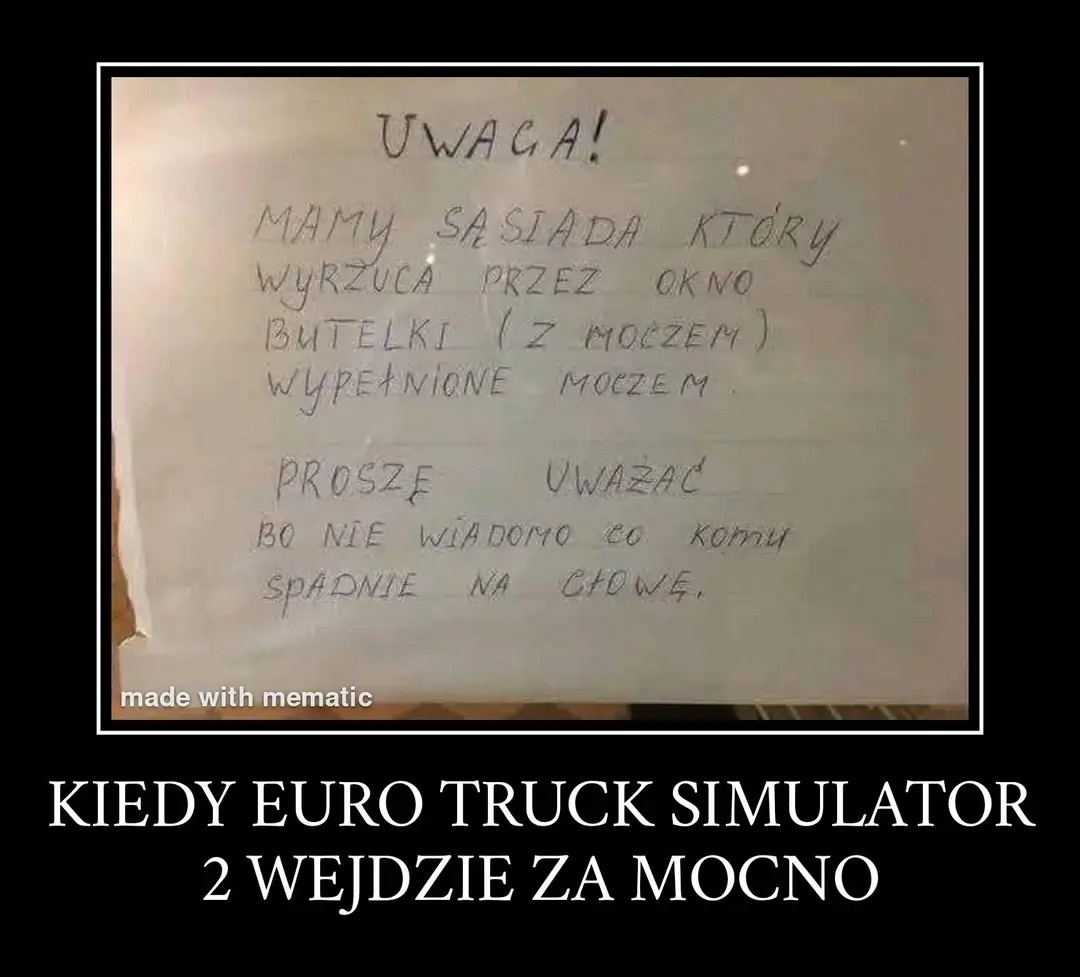 UWAGA!
MAMY SĄSIADA KTÓRY
WYRZUCA PRZEZ OKNO
BUTELKI (Z MOCZEM)
WYPEŁNIONE MOCZEM.
PROSZĘ UWAŻAĆ
BO NIE WIADOMO CO KOMU
SPADNIE NA GŁOWĘ.
made with mematic
KIEDY EURO TRUCK SIMULATOR
2 WEJDZIE ZA MOCNO